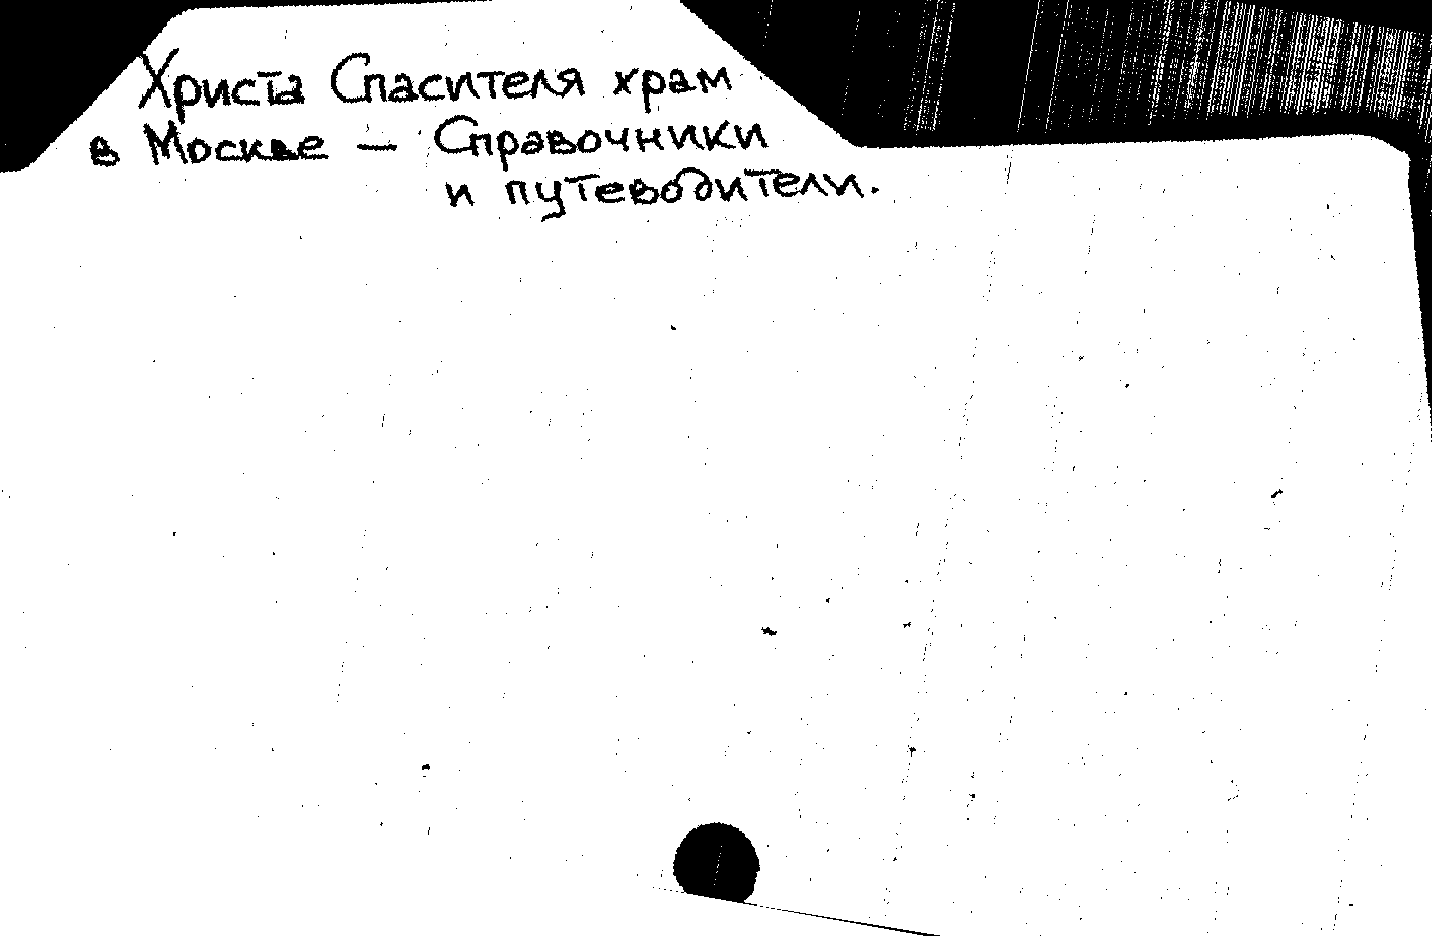 Христа Спасителя храм
в Москве — Справочники
и путеводители.